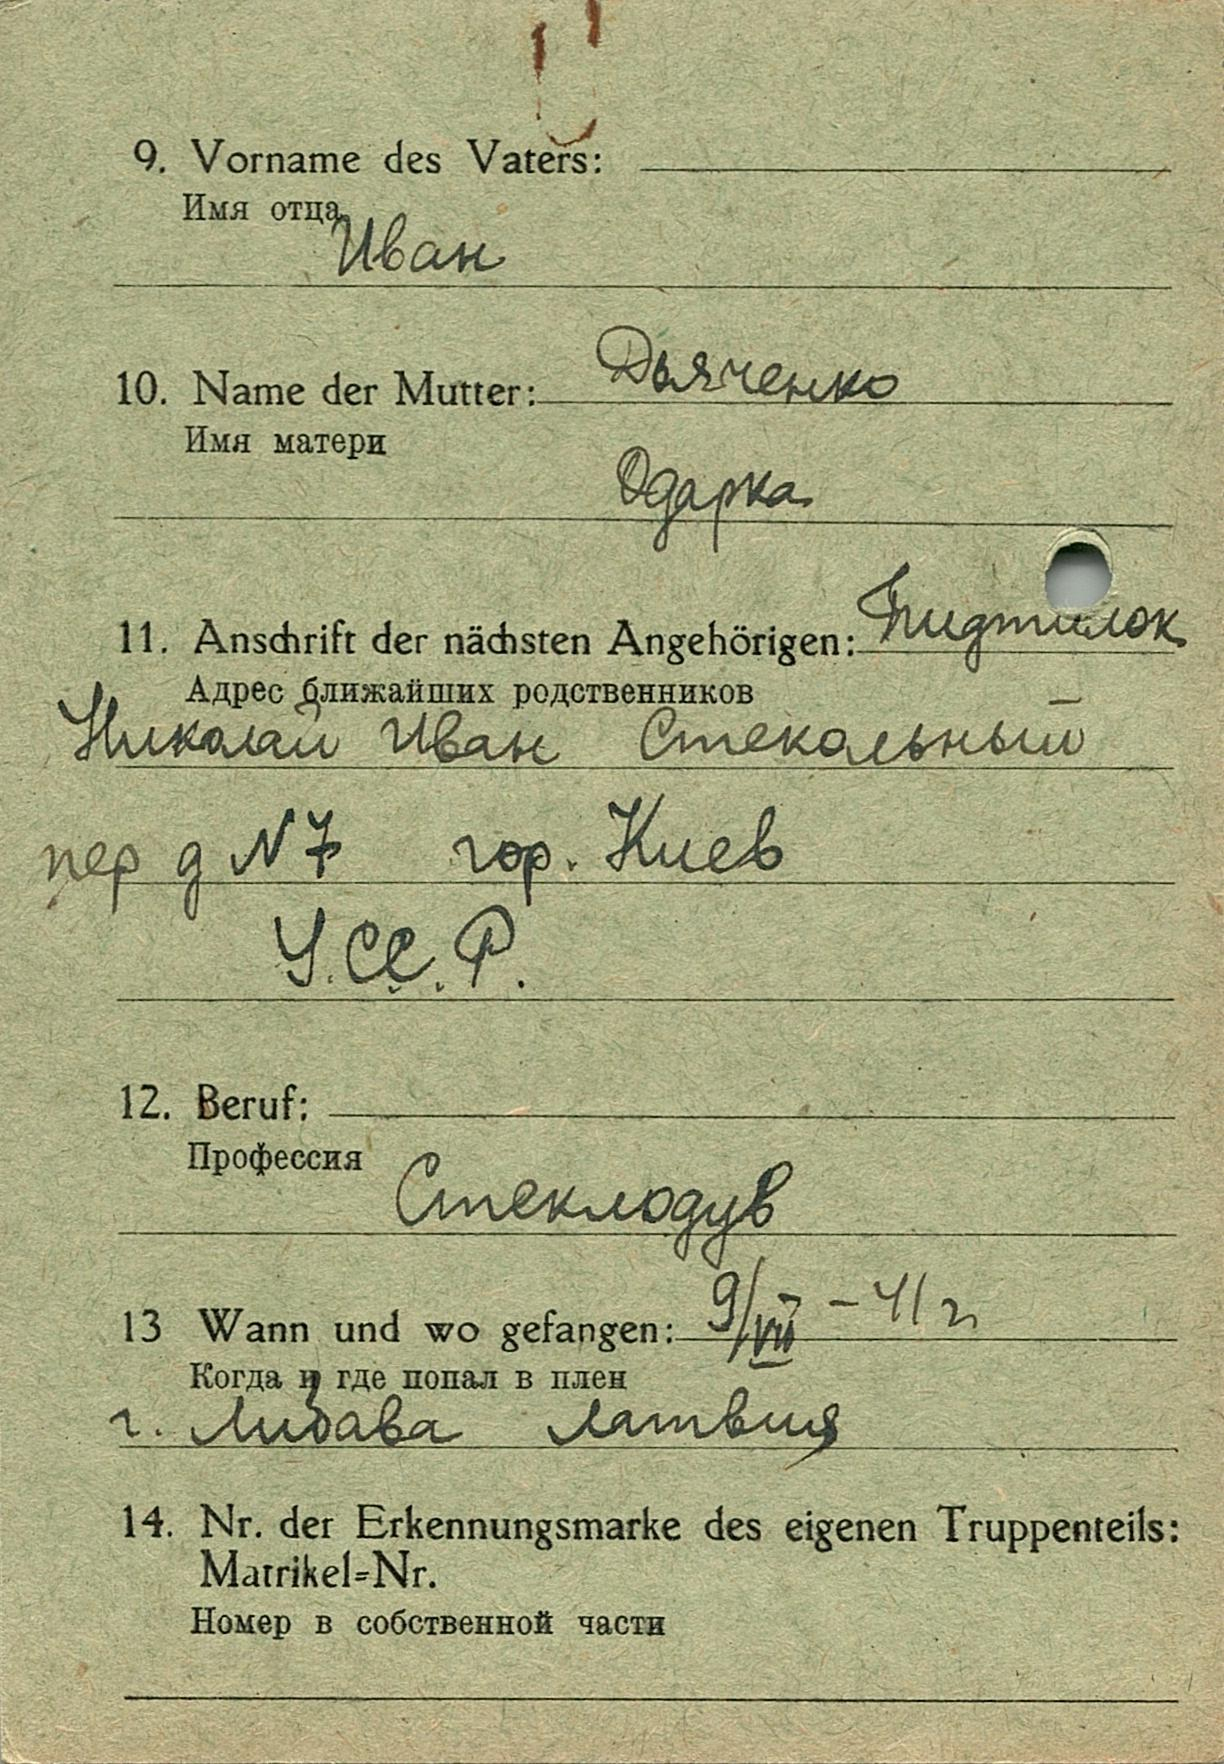 9. Vorname des Vaters:
Имя отца
Иван
10. Name der Mutter: Дьяченко
Имя матери
Одарка
11. Anschrift der nächsten Angehörigen:
Адрес ближайших родственников
Николай Иван Стекольный
пер д N 7 гор. Киев
У.СС.Р.
12. Beruf:
Профессия
Стеклодув
13 Wann und wo gefangen: 9/VII – 41 г
Когда и где попал в плен
г. Либава Латвия
14. Nr. der Erkennungsmarke des eigenen Truppenteils:
Matrikel=Nr.
Номер в собственной части